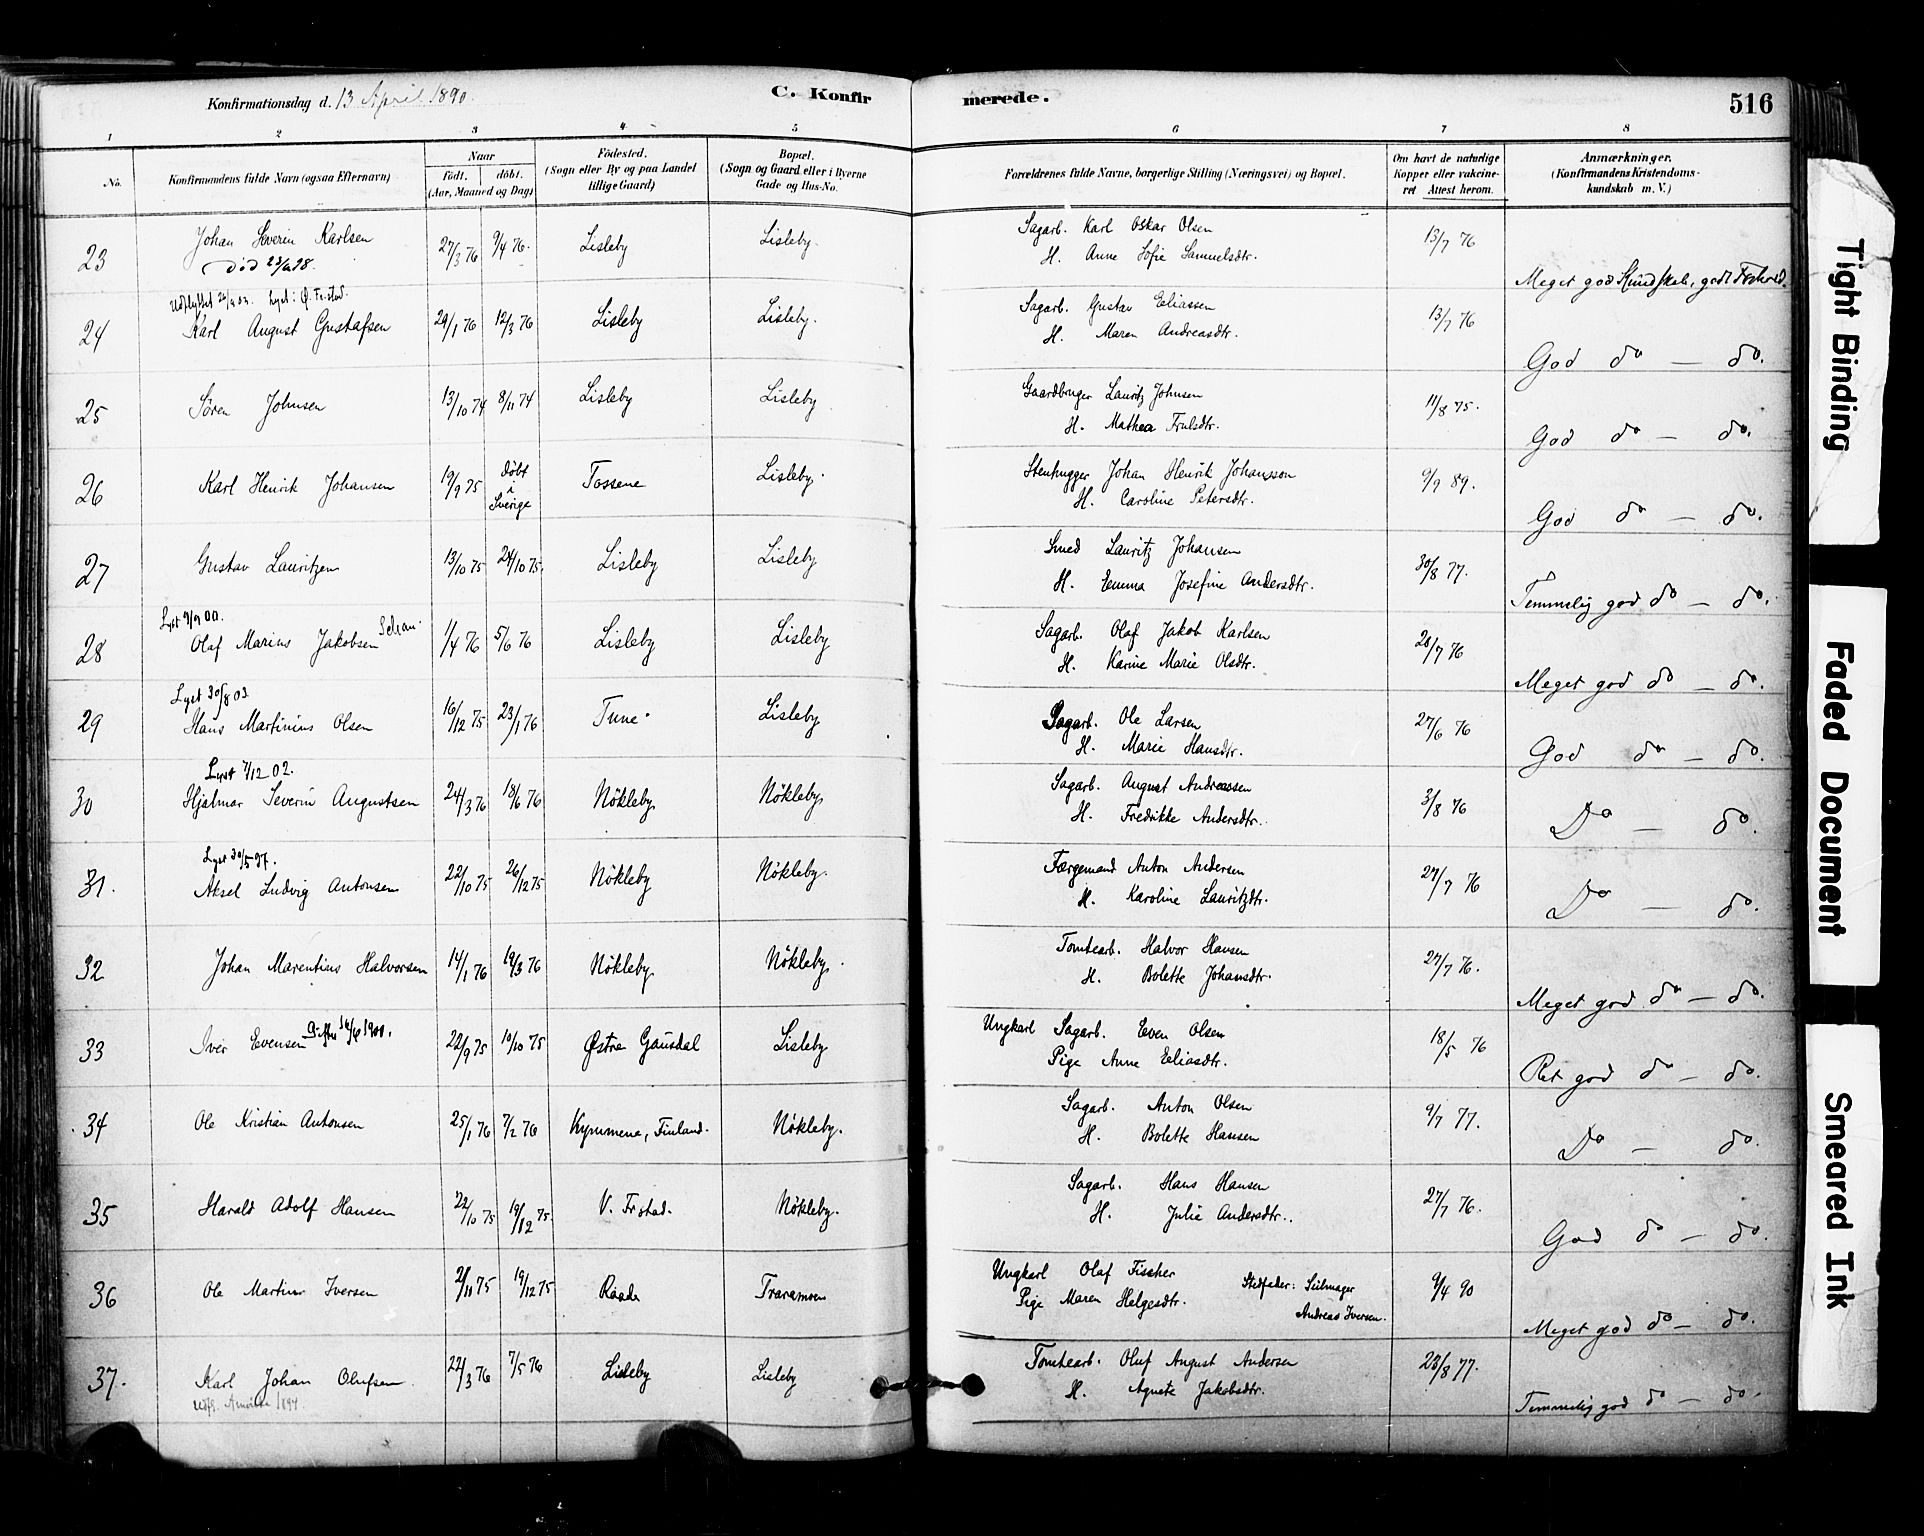 Konfirmationsdag d. 13 April 1890.
C. Konfirmerede.
516
1 2 3 4 5 6 7 8
No.
Konfirmandens fulde Navn (ogsaa Efternavn)
Naar
födt. döbt.
(Aar, Maaned og Dag)
Födested.
(Sogn eller By og paa Landet
tillige Gaard)
Bopæl.
(Sogn og Gaard eller i Byerne
Gade og Hus-No.
Forældrenes fulde Navne, borgerlige Stilling (Næringsvei) og Bopæl.
Om havt de naturlige
Kopper eller vakcine-
ret Attest herom.
Anmærkninger.
(Konfirmandens Kristendoms-
kundskab m. V.)
23 Johan Severin Karlsen 27/3 76 9/4 76. Lisleby Lisleby. Sagarb. Karl Oskar Olsen 13/7 76
Död
H. Anne Sofie Samuelsdtr. Meget god Kundskab, godt Forhold.
Udflyttet
24 Karl August Gustafsen 29/1 76 12/3 76 Lisleby Lisleby. Sagarb. Gustav Eliassen 13/7 76
H. Maren Andreasdtr. God do — do.
25 Sören Johnsen 13/10 74 8/11 74 Lisleby Lisleby Gaardbruger Lauritz Johnsen 11/8 75.
H. Mathea Frulsdtr. God do — do.
26 Karl Henrik Johansen 19/9 75 döbt i Sverige Tossene Lisleby. Stenhugger Johan Henrik Johansson 9/9 89.
H. Caroline Petersdtr. God do — do.
27 Gustav Lauritzen 13/10 75 24/10 75. Lisleby Lisleby Smed Lauritz Johansen 30/8 77.
H. Emma Josefine Andersdtr. Temmelig god do — do.
Lyst 9/9 00.
28 Olaf Marius Jakobsen 1/4 76 5/6 76 Lisleby Lisleby Sagarb. Olaf Jakob Karlsen 20/7 76
H. Karine Marie Olsdtr. Meget god do — do.
Lyst 30/8 03.
29 Hans Martinius Olsen 16/12 75 23/1 76 Tune. Lisleby Sagarb. Ole Larsen 27/6 76
H. Marie Hansdtr. God do — do.
Lyst 7/12 02.
30 Hjalmar Severin Augustsen 24/3 76 18/6 76 Nökleby Nökleby Sagarb. August Andreassen 3/8 76
H. Fredrikke Andersdtr. Do — do.
Lyst 30/5 97.
31. Aksel Ludvig Antonsen 22/10 75 26/12 75 Nökleby Nökleby. Færgemand Anton Andersen 27/7 76
H. Karoline Lauritzdtr. Do — do.
32 Johan Marentius Halvorsen 14/1 76 19/3 76 Nökleby Nökleby. Tomtearb. Halvor Hansen 27/7 76.
H. Bolette Johansdtr. Meget god do — do.
33 Iver Evensen 22/9 75 10/10 75 Östre Gausdal Lisleby Ungkarl Sagarb. Even Olsen 18/5 76
Pige Anne Eliasdtr. Ret god do — do.
34 Ole Kristian Antonsen 25/1 76 7/2 76 Kymmene, Finland. Nökleby. Sagarb. Anton Olsen 9/7 77.
H. Bolette Hansen Do — do.
35 Harald Adolf Hansen 22/10 75 19/12 75. V. Frstad. Nökleby. Sagarb. Hans Hansen 27/7 76.
H. Julie Andersdtr. God do — do.
36 Ole Martin Iversen 2/11 75 19/12 75 Raade Traramoen Ungkarl Olaf Fischer Stedfader: Seilmager 9/4 90
Pige Maren Helgesdtr. Andreas Iversen. Meget god do — do.
37. Karl Johan Olufsen 22/3 76 7/5 76 Lisleby Lisleby Tomtearb. Oluf August Andersen 23/8 77.
Udfl. Amerika 1894
H. Agnete Jakobsdtr. Temmelig god do — do.
Tight Binding
Faded Document
Smeared Ink